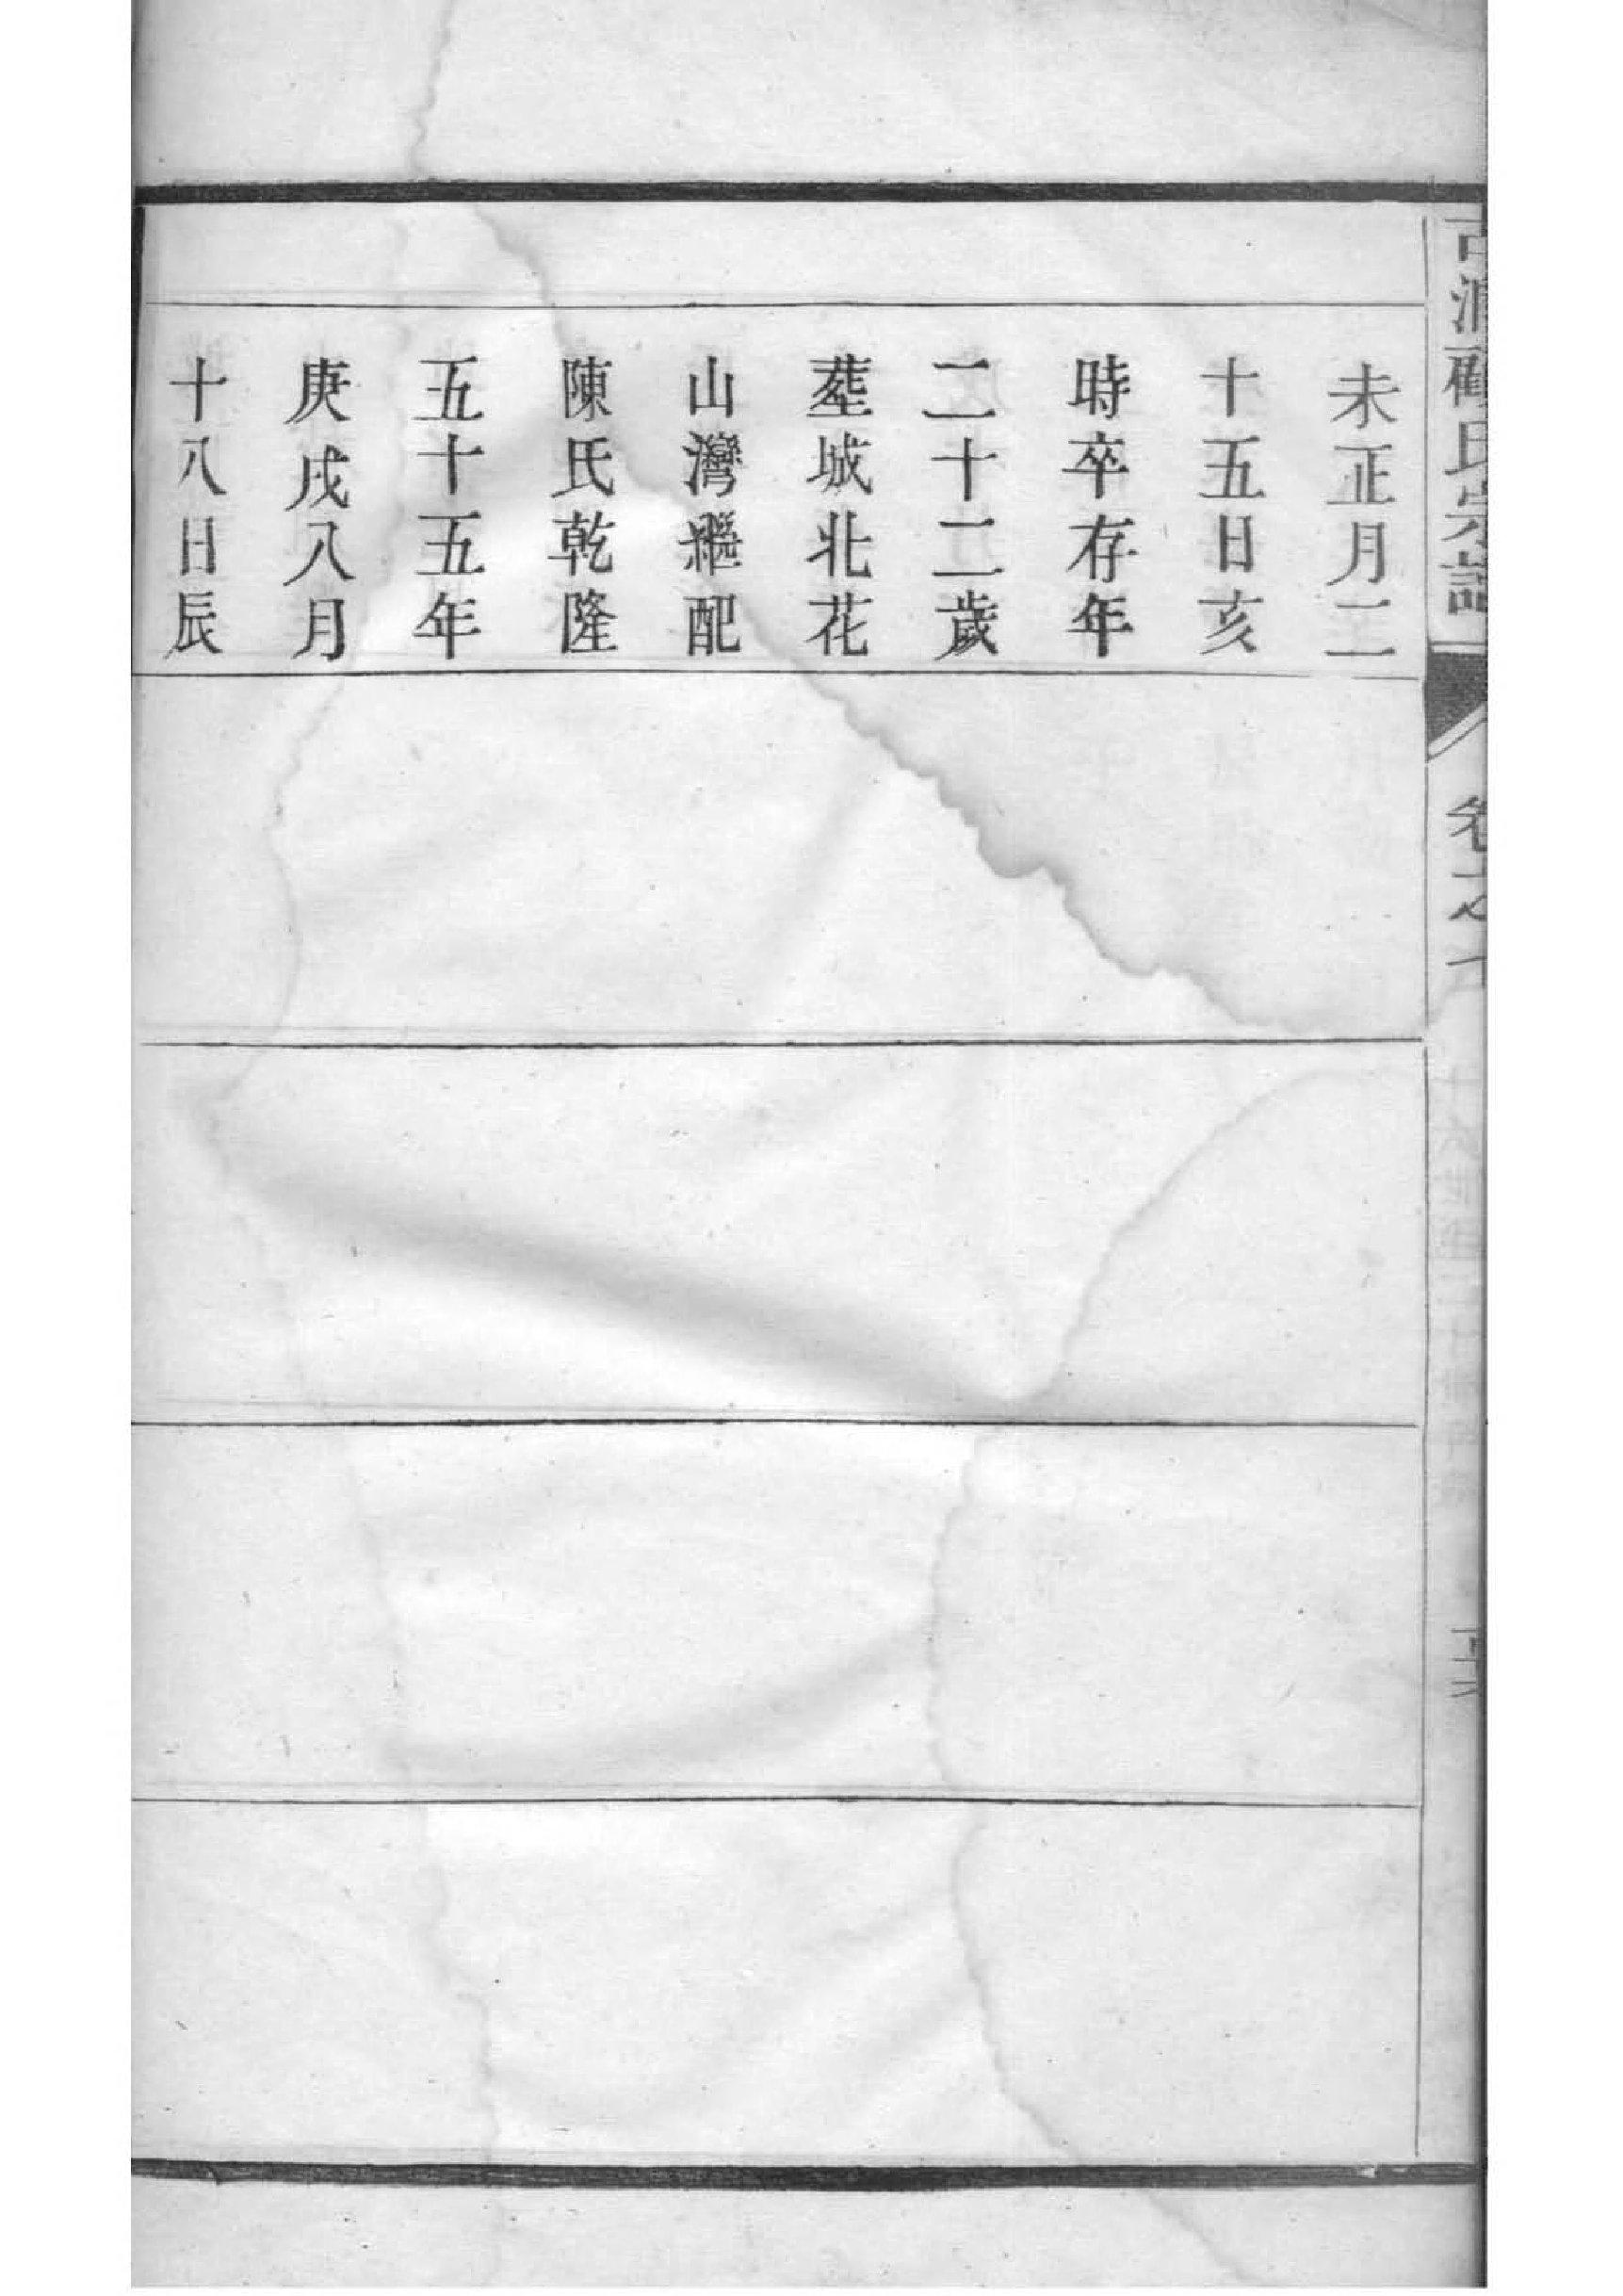 氏宗譜
卷
未正月二
十五日亥
時卒存年
二十二歲
塟城北花
山灣繼配
陳氏乾隆
五十五年
庚戌八月
十八日辰